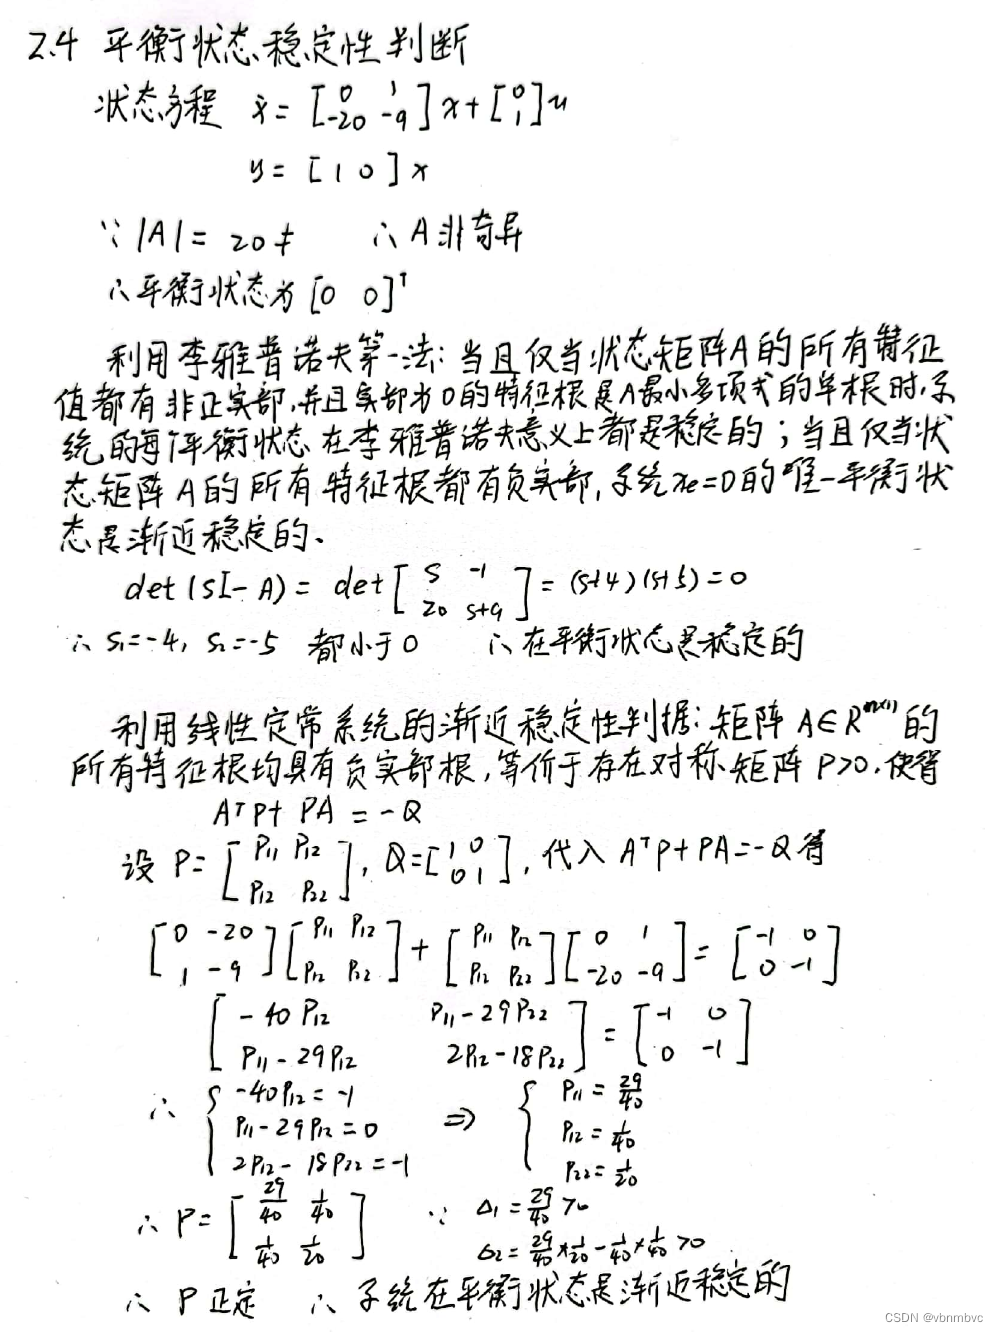 2.4 平衡状态稳定性判断
状态方程 ẋ = [0 1 -20 -9] x + [0 1] u
y = [1 0] x
∵ |A| = 20 ≠ ∴ A非奇异
∴ 平衡状态为 [0 0]ᵀ
利用李雅普诺夫第一法: 当且仅当状态矩阵A的所有特征
值都有非正实部,并且实部为0的特征根是A最小多项式的单根时,系
统的每个平衡状态在李雅普诺夫意义上都是稳定的; 当且仅当状
态矩阵A的所有特征根都有负实部,系统xe=0的唯一平衡状
态是渐近稳定的、
det(sI-A) = det [s -1 20 s+9] = (s+4)(s+5) = 0
∴ s₁=-4, s₂=-5 都小于0 ∴ 在平衡状态是稳定的
利用线性定常系统的渐近稳定性判据: 矩阵 A∈R 的
所有特征根均具有负实部根,等价于存在对称矩阵 P>0,使得
AᵀP + PA = -Q
设 P = [P₁₁ P₁₂ P₁₂ P₂₂], Q = [1 0 0 1], 代入 AᵀP+PA=-Q 得
[0 -20 1 -9] [P₁₁ P₁₂ P₁₂ P₂₂] + [P₁₁ P₁₂ P₁₂ P₂₂] [0 1 -20 -9] = [-1 0 0 -1]
[-40P₁₂ P₁₁-29P₂₂ P₁₁-29P₁₂ 2P₁₂-18P₂₂] = [-1 0 0 -1]
∴ { -40P₁₂ = -1 ⇒ { P₁₁ = 29/40
P₁₁-29P₁₂ = 0 P₁₂ = 1/40
2P₁₂-18P₂₂ = -1 P₂₂ = 1/20
∴ P = [29/40 1/40 1/40 1/20] ∵ Δ₁ = 29/40 >0
Δ₂ = 29/40 × 1/20 - 1/40 × 1/40 >0
∴ P正定 ∴ 系统在平衡状态是渐近稳定的
CSDN @vbnmbvc